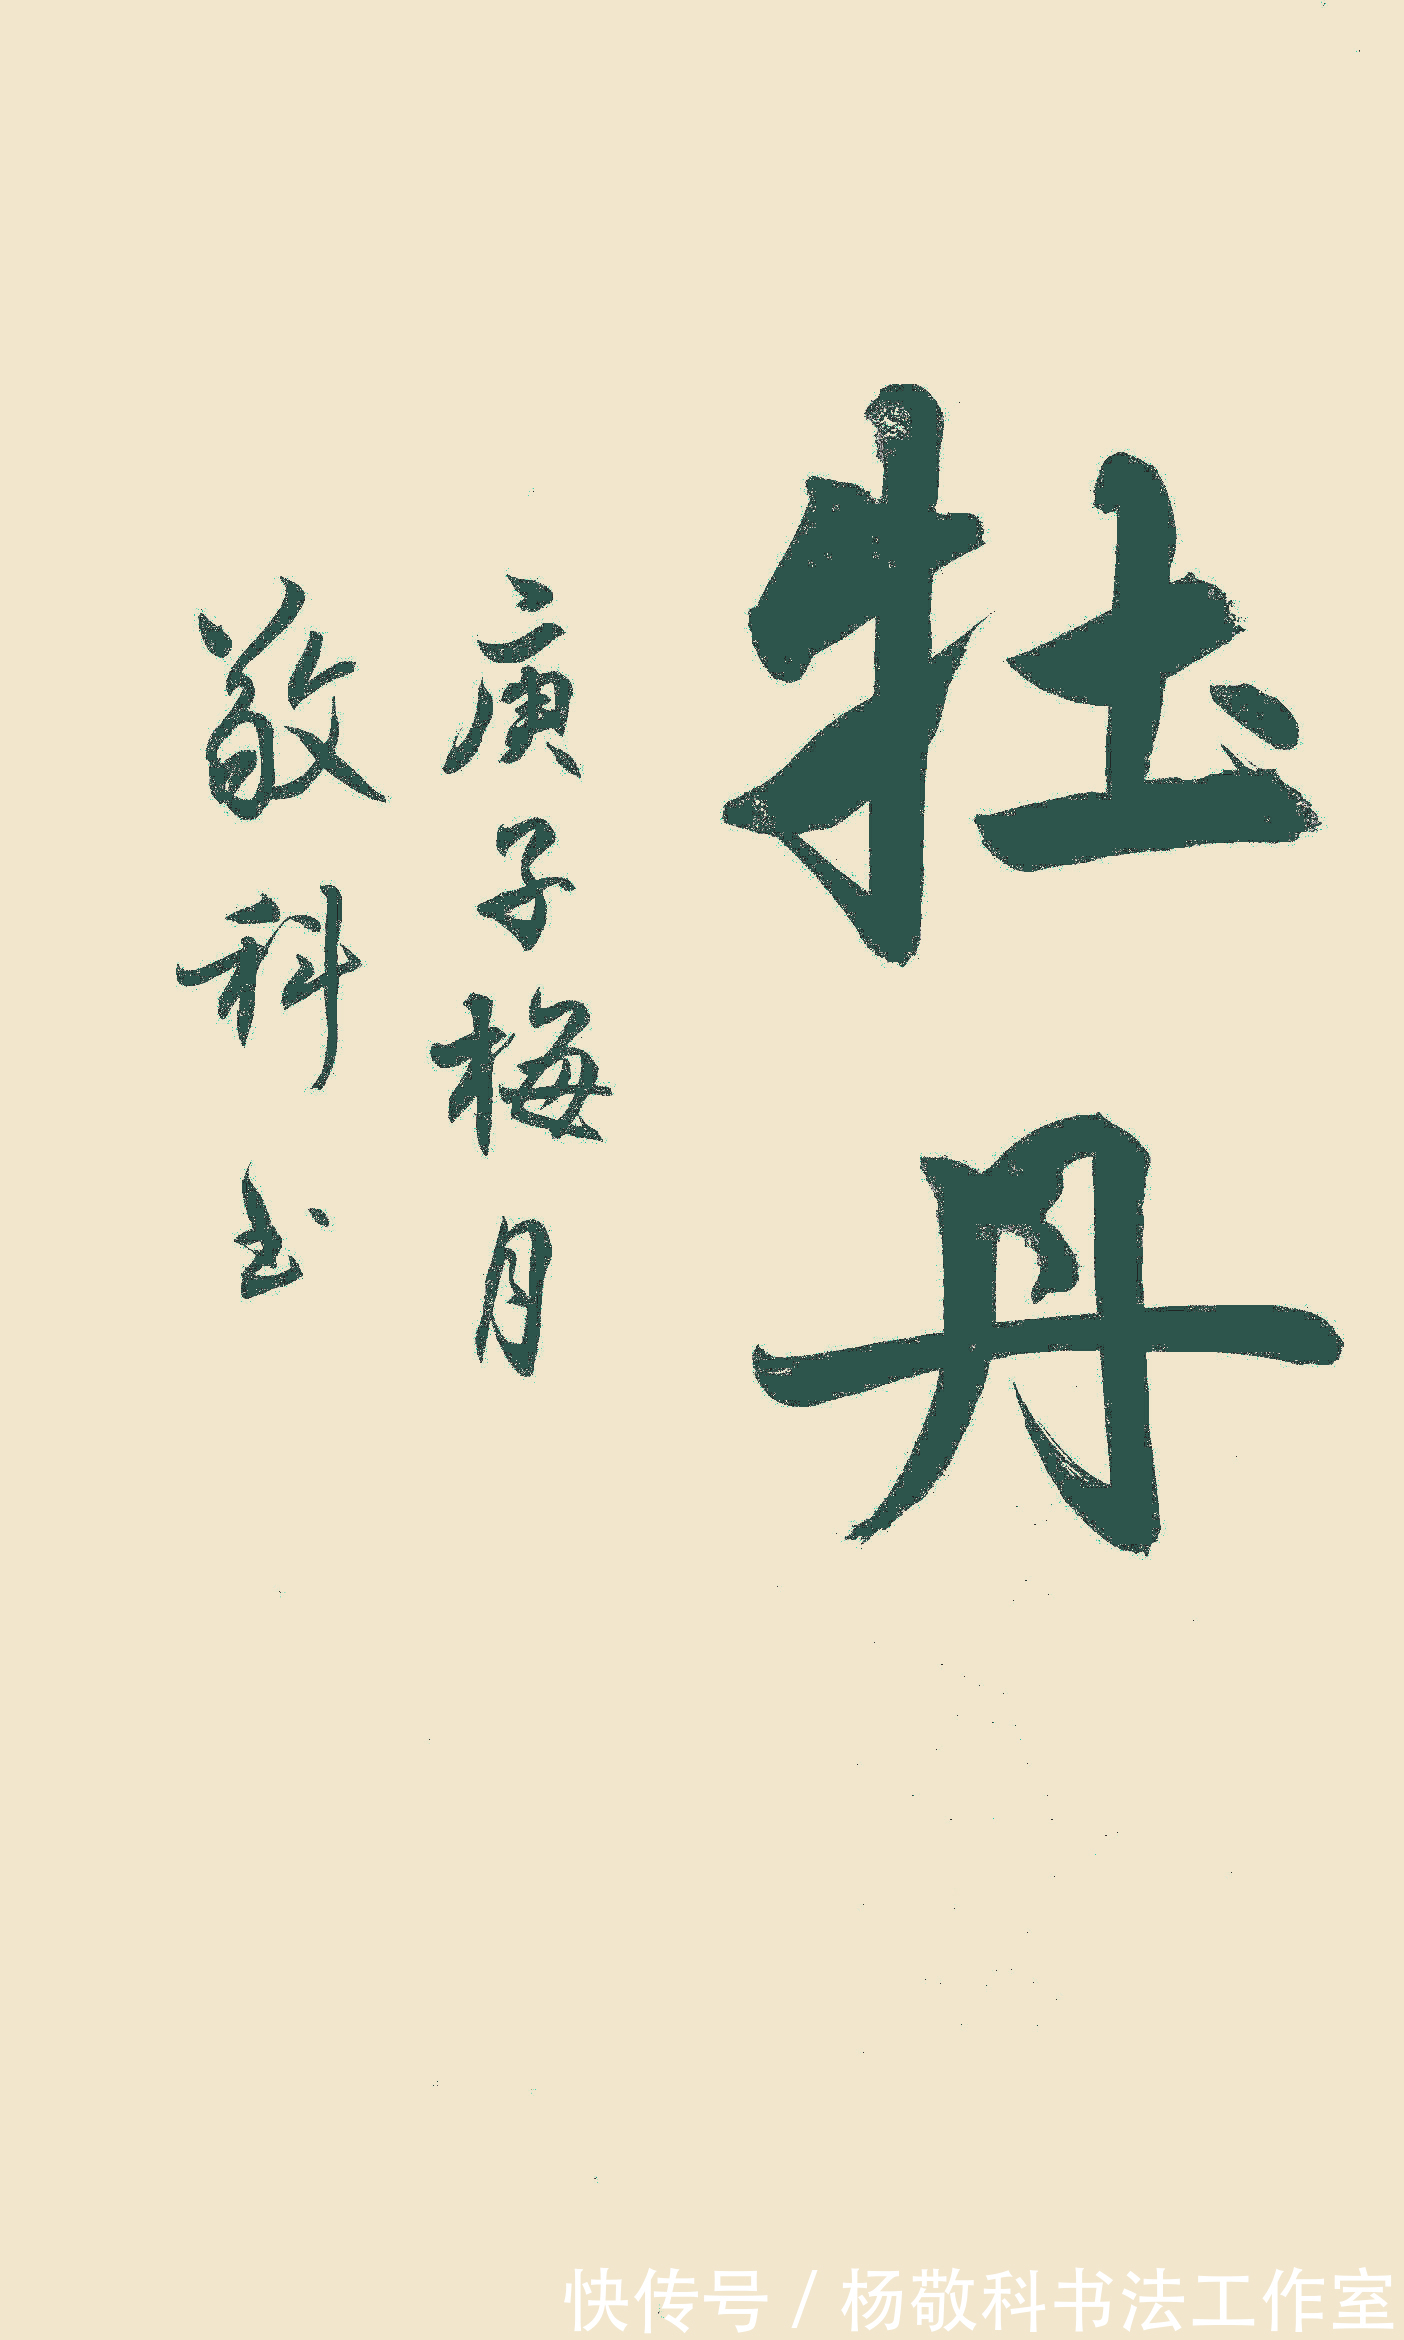 牡丹
庚子梅月
敬科书
快传号 / 杨敬科书法工作室